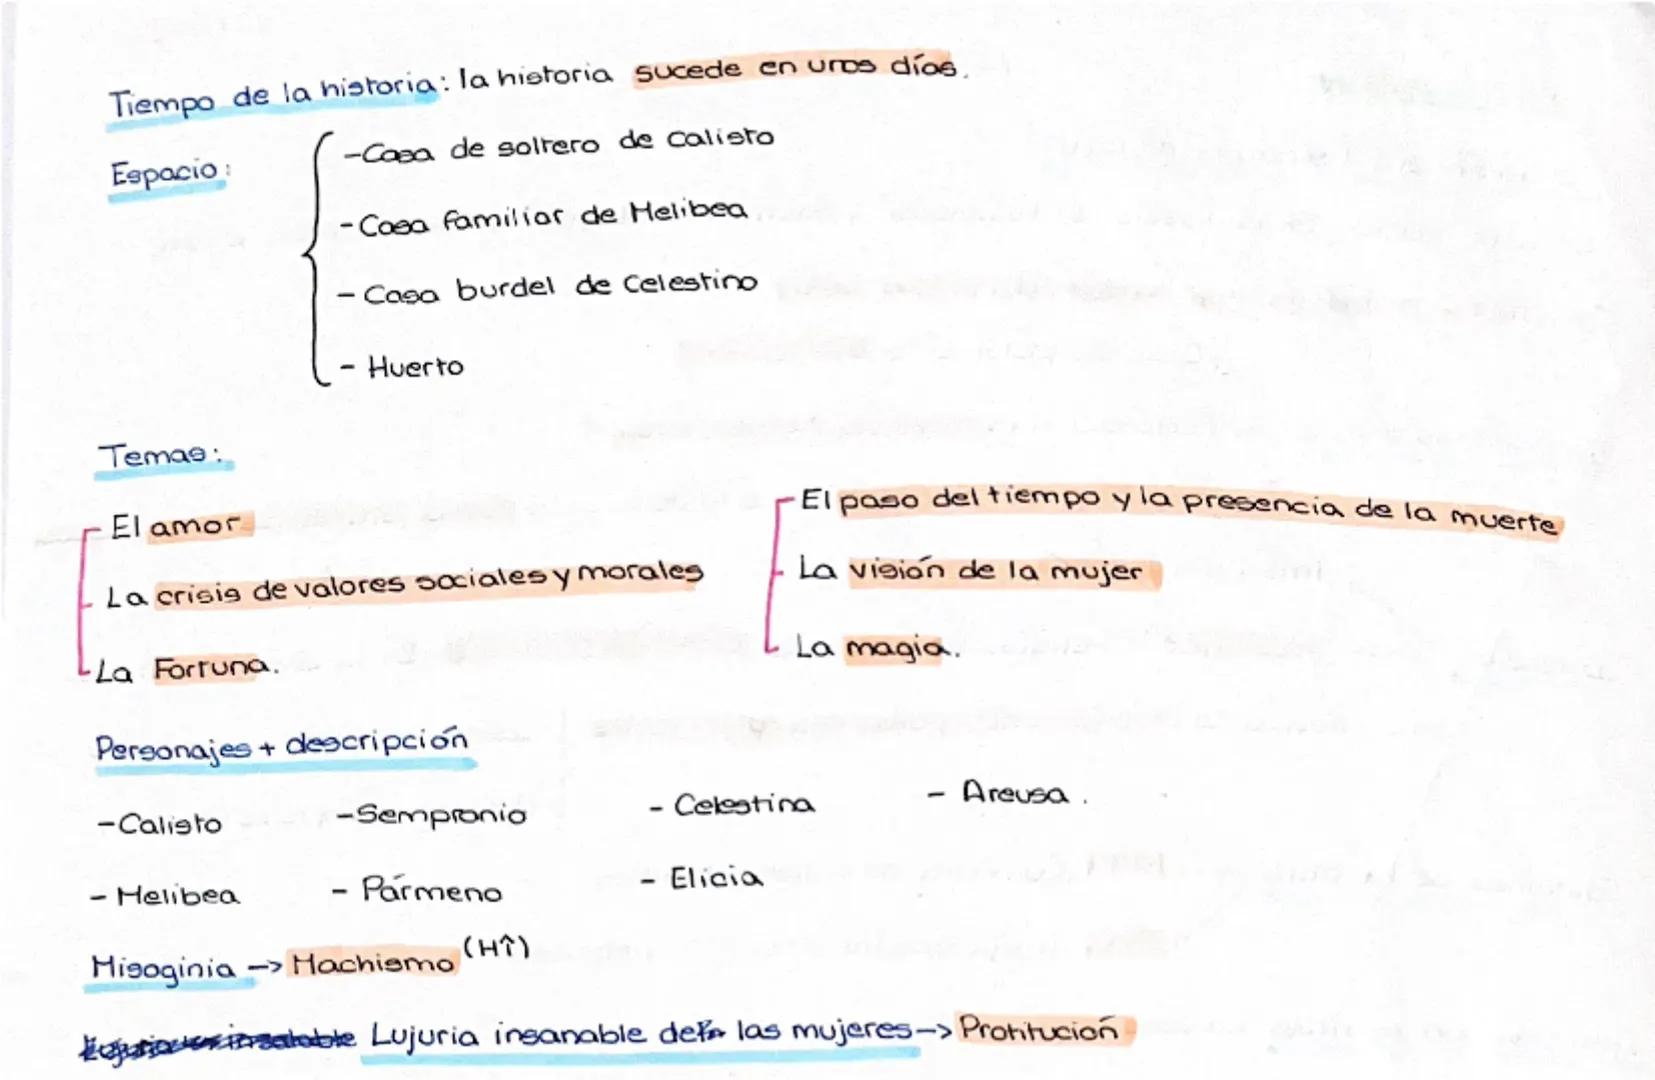 Tiempo de la historia: la historia sucede en unos días.
Espacio:
-Casa de soltero de Calisto
-Casa familiar de Melibea
- Casa burdel de Celestina
- Huerto
Temas:
El amor
La crisis de valores sociales y morales
La Fortuna.
El paso del tiempo y la presencia de la muerte
La visión de la mujer
La magia.
Personajes + descripción
-Calisto -Sempronio - Celestina - Areusa.
- Melibea - Pármeno - Elicia
Misoginia -> Machismo (H↑)
Lujuria insanable de las mujeres -> Protitución